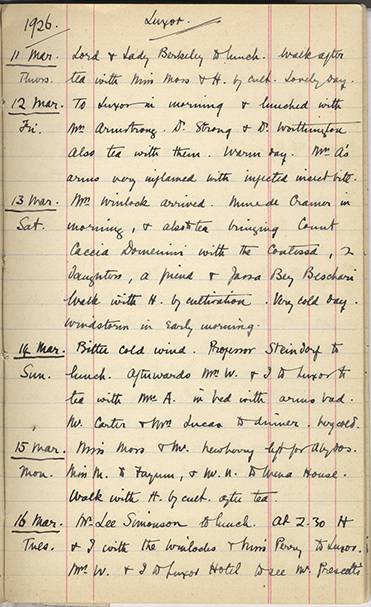 1926. Luxor.
11 Mar. Lord & Lady Berkeley to lunch. Walk after
Thurs. tea with Miss Moss & H. by cult. Lovely day.
12 Mar. To Luxor in morning & lunched with
Fri. Mrs Armstrong. Dr Strong & Dr Worthington
also tea with them. Warm day. Mrs A's
arms very inflamed with infected insect bite.
13 Mar. Mrs Winlock arrived. Mme de Cramer in
Sat. morning, & also to tea bringing Count
Caccia Dominini with the Contissa, 2
Daughters, a friend & Jassa Bey Beschari
Walk with H. by cultivation. Very cold day.
Windstorm in early morning.
14 Mar. Bitter cold wind. Professor Steindorf to
Sun. lunch. Afterwards Mrs W. & I to Luxor to
tea with Mrs A. in bed with arms bad.
Mr. Carter & Mr Lucas to dinner. Very cold.
15 Mar. Miss Moss & Mr. Newberry left for Abydos.
Mon. Miss M. to Fayum, & Mr. N. to Mena House.
Walk with H. by cult. after tea
16 Mar. Mr Lee Simonson to lunch. At 2.30 H
Tues. & I with the Winlocks & Miss Perry to Luxor.
Mrs W. & I to Luxor Hotel to see Mr. Prescott's